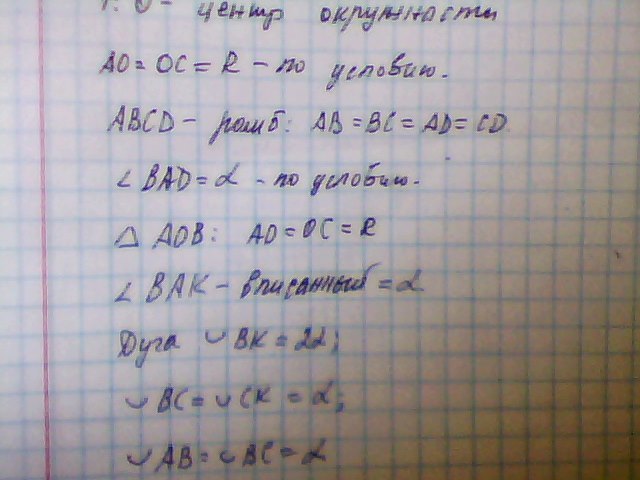 т. О - центр окружности
AO = OC = R - по условию.
ABCD - ромб: AB = BC = AD = CD
∠ BAD = α - по условию.
△ AOB: AO = OC = R
∠ BAK - вписанный = α
Дуга ◡ BK = 2α;
◡ BC = ◡ CK = α;
◡ AB = ◡ BC = α